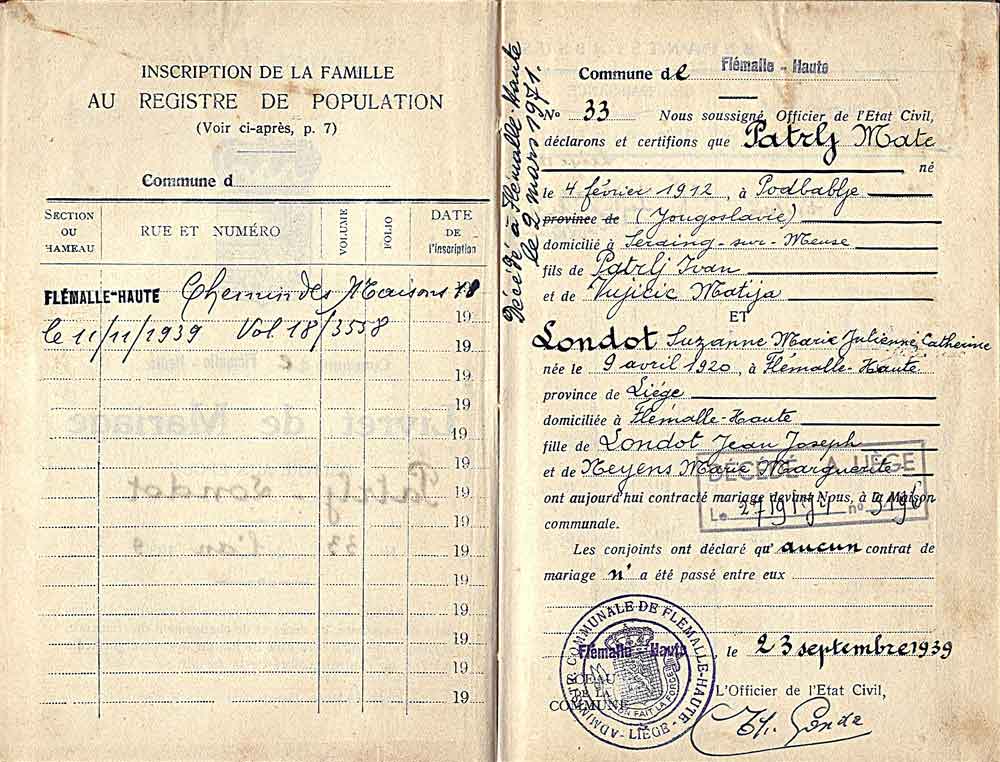 INSCRIPTION DE LA FAMILLE
AU REGISTRE DE POPULATION
(Voir ci-après, p. 7)
Commune d
SECTION OU HAMEAU
RUE ET NUMÉRO
VOLUME
FOLIO
DATE DE l'inscription
FLÉMALLE-HAUTE Chemin des Maisons 18
19
le 11/11/1939 Vol. 18/3558
19
19
19
19
19
19
19
19
19
19
19
19
19
Décédé à Flémalle-Haute
le 2 mars 1971.
Commune de Flémalle - Haute
No 33 Nous soussigné, Officier de l'Etat Civil,
déclarons et certifions que Patrlj Mate
né
le 4 février 1912, à Podbablje
province de (Yougoslavie)
domicilié à Seraing-sur-Meuse
fils de Patrlj Ivan
et de Vujicic Matija
ET
Londot Suzanne Marie Julienne Catherine
née le 9 avril 1920, à Flémalle-Haute
province de Liége
domiciliée à Flémalle-Haute
fille de Londot Jean Joseph
et de Neyens Marie Marguerite
DÉCÉDÉ A LIÈGE
ont aujourd'hui contracté mariage devant Nous, à la Maison
Le no
communale.
Les conjoints ont déclaré qu'aucun contrat de
mariage n'a été passé entre eux
ADMINISTR. COMMUNALE DE FLÉMALLE-HAUTE
-LIÈGE-
Flémalle - Haute
SCEAU
DE LA
COMMUNE
, le 23 septembre 1939
L'Officier de l'Etat Civil,